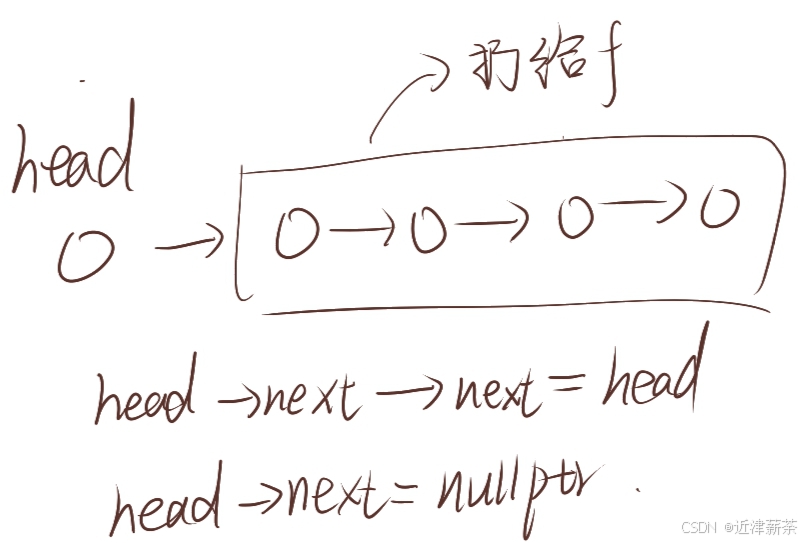 扔给f
head
0 → 0 → 0 → 0 → 0
head → next → next = head
head → next = nullptr.
CSDN @近津薪荼